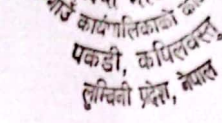 गाउँ कार्यपालिकाको का
पकडी, कपिलवस्तु
लुम्बिनी प्रदेश, नेपाल